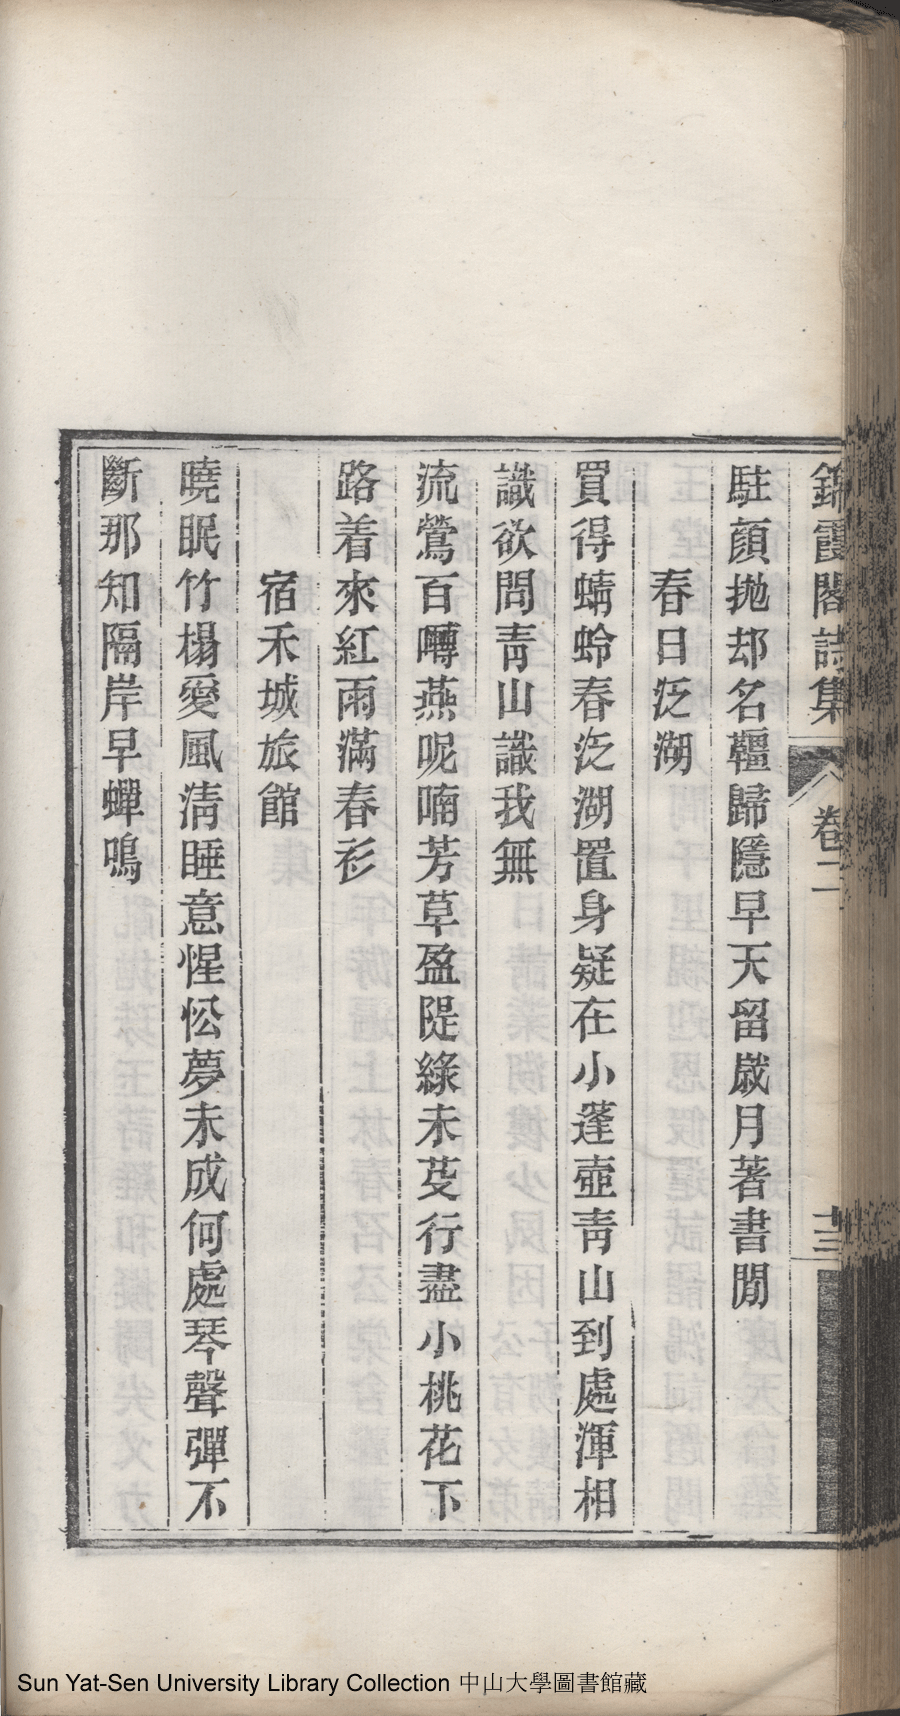 錦霞閣詩集 卷二 十三
駐顔拋却名韁歸隱早天留歲月著書閒
春日泛湖
買得蜻蛉春泛湖置身疑在小蓬壺青山到處渾相
識欲問青山識我無
流鶯百囀燕呢喃芳草盈隄綠未芟行盡小桃花下
路着來紅雨滿春衫
宿禾城旅館
曉眠竹榻愛風清睡意惺忪夢未成何處琴聲彈不
斷那知隔岸早蟬鳴
Sun Yat-Sen University Library Collection 中山大學圖書館藏